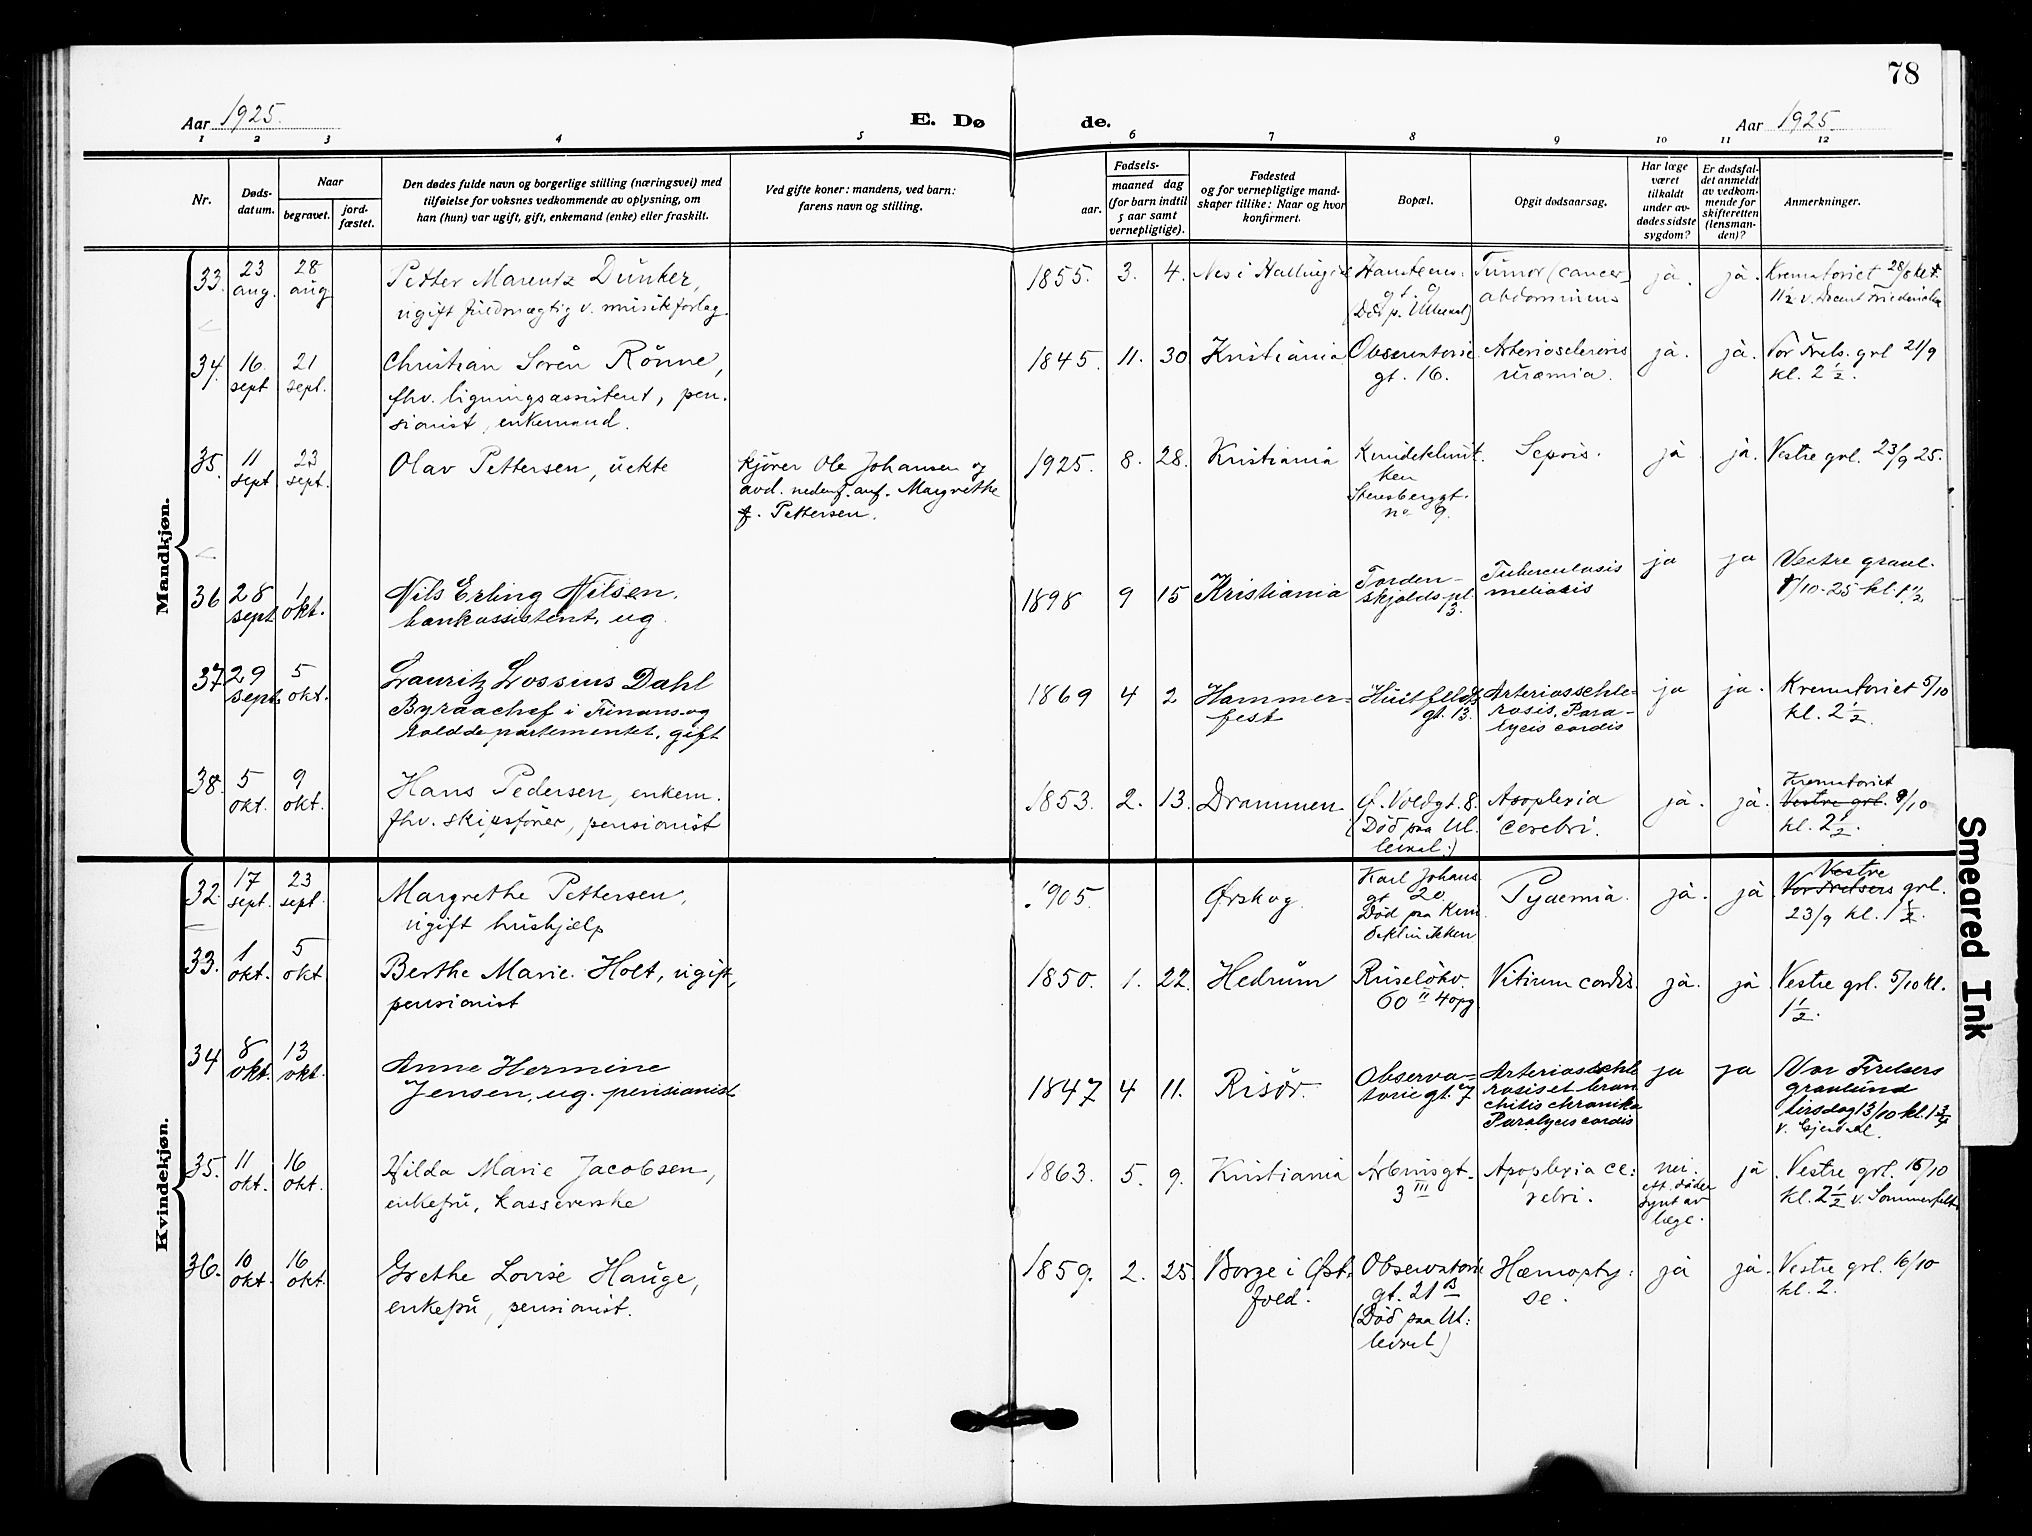 78
Aar 1925.
E. Dø
de.
Aar 1925.
1 2 3 4 5 6 7 8 9 10 11 12
Nr.
Døds-
datum.
Naar
begravet.
jord-
fæstet.
Den dødes fulde navn og borgerlige stilling (næringsvei) med
tilføielse for voksnes vedkommende av oplysning, om
han (hun) var ugift, gift, enkemand (enke) eller fraskilt.
Ved gifte koner: mandens, ved barn:
farens navn og stilling.
aar.
Fødsels-
maaned dag
(for barn indtil
5 aar samt
vernepligtige).
Fødested
og for vernepligtige mand-
skaper tillike: Naar og hvor
konfirmert.
Bopæl.
Opgit dødsaarsag.
Har læge
været
tilkaldt
under av-
dødes sidste
sygdom?
Er dødsfal-
det anmeldt
av vedkom-
mende for
skifteretten
(lensman-
den)?
Anmerkninger.
Mandkjøn.
33. 23 aug. 28 aug
Petter Marentz Dunker,
ugift fuldmægtig v. musikforlag.
1855. 3. 4. Nes i Hallingd
Hansteens:
gt. 9
(Død p. Ulleval)
Tumor (cancer)
abdominens
ja. ja.
Krematoriet 28/8 kl.
11½ v. Docent Friederichsen
34. 16. sept 21 sept.
Christian Sorén Rönne,
fhv. ligningsassistent, pen.
sionist, enkemand.
1845. 11. 30 Kristiania
Observatorie
gt. 16.
Arteriosclerosis
uræmia.
ja. ja.
Vor Frels. grl 21/9
kl. 2½.
35. 11 sept 23 sept.
Olav Pettersen, uekte
kjörer Ole Johansen og
avd. nedenf. anf. Margrethe
f. Pettersen.
1925. 8. 28. Kristiania
Kvindeklinik
ken
Stensberggt.
no 9.
Sepsis.
ja ja.
Vestre grl. 23/9 25.
36 28 sept 1 okt.
Nils Erling Nilsen,
bankassistent, ug.
1898 9 15 Kristiania
Torden-
skjolds pl.
13.
Tuberculosis
meliasis
ja ja
Vestre gravl.
1/10-25 kl. 1½
37 29 sept. 5 okt.
Lauritz Lossius Dahl
Byraachef i Finans-og
tolddepartementet, gift
1869 4 2 Hammer-
fest
Huitfeldts
gt. 13.
Arteriosschle-
rosis, Para-
lycis cordis
ja ja.
Krematoriet 5/10
kl. 2½.
38. 5 okt. 9 okt.
Hans Pedersen, enkem.
fhv. skipsförer, pensionist
1853. 2. 13. Drammen
Ø. Voldgt. 8.
(Död paa Ul.
leval.)
Apoplexia
cerebri.
ja. ja.
Krematoriet
Vestre grl. 9/10
kl. 2½.
Kvindekjøn.
32. 17 sept. 23 sept.
Margrethe Pettersen,
ugift hushjælp
1905. Ørskog
Karl Johans
gt 20
Død paa Kvin
deklinikken
Pyaemia.
ja. ja
Vestre
Vor Frelsers grl.
23/9 kl. 1½.
33. 1 okt. 5 okt
Berthe Marie Holt, ugift,
pensionist
1850. 1. 22. Hedrum
Ruselökv.
60 II 4 opg.
Vitium cordis.
ja. ja
Vestre grl. 5/10 kl.
1½.
34 8 okt. 13 okt.
Anne Hermine
Jensen, ug. pensionist
1847 4 11. Risör.
Observa-
toriegt. 7
Arteriosschle
rosis et bron
chitis chronika
Paralycis cordis
ja ja
Vor Frelsers
gravlund
tirsdag 13/10 kl. 1¾
v. Gjerdal.
35. 11 okt. 16 okt.
Hilda Marie Jacobsen,
enkefru, kassererske
1863. 5. 9. Kristiania
Arbinsgt.
3 III
Apoplexia ce:
rebri.
nei.
eft. döden
synt av
læge.
ja
Vestre grl. 16/10
kl. 2½ v. Sommerfelt
36. 10 okt. 16 okt.
Grethe Lovise Hauge,
enkefru, pensionist.
1859. 2. 25. Borge i Øst.
fold.
Observatorie
gt. 21 B
(Död paa Ul:
leval)
Hæmopty:
se.
ja ja.
Vestre grl. 16/10
kl. 2.
Smeared Ink